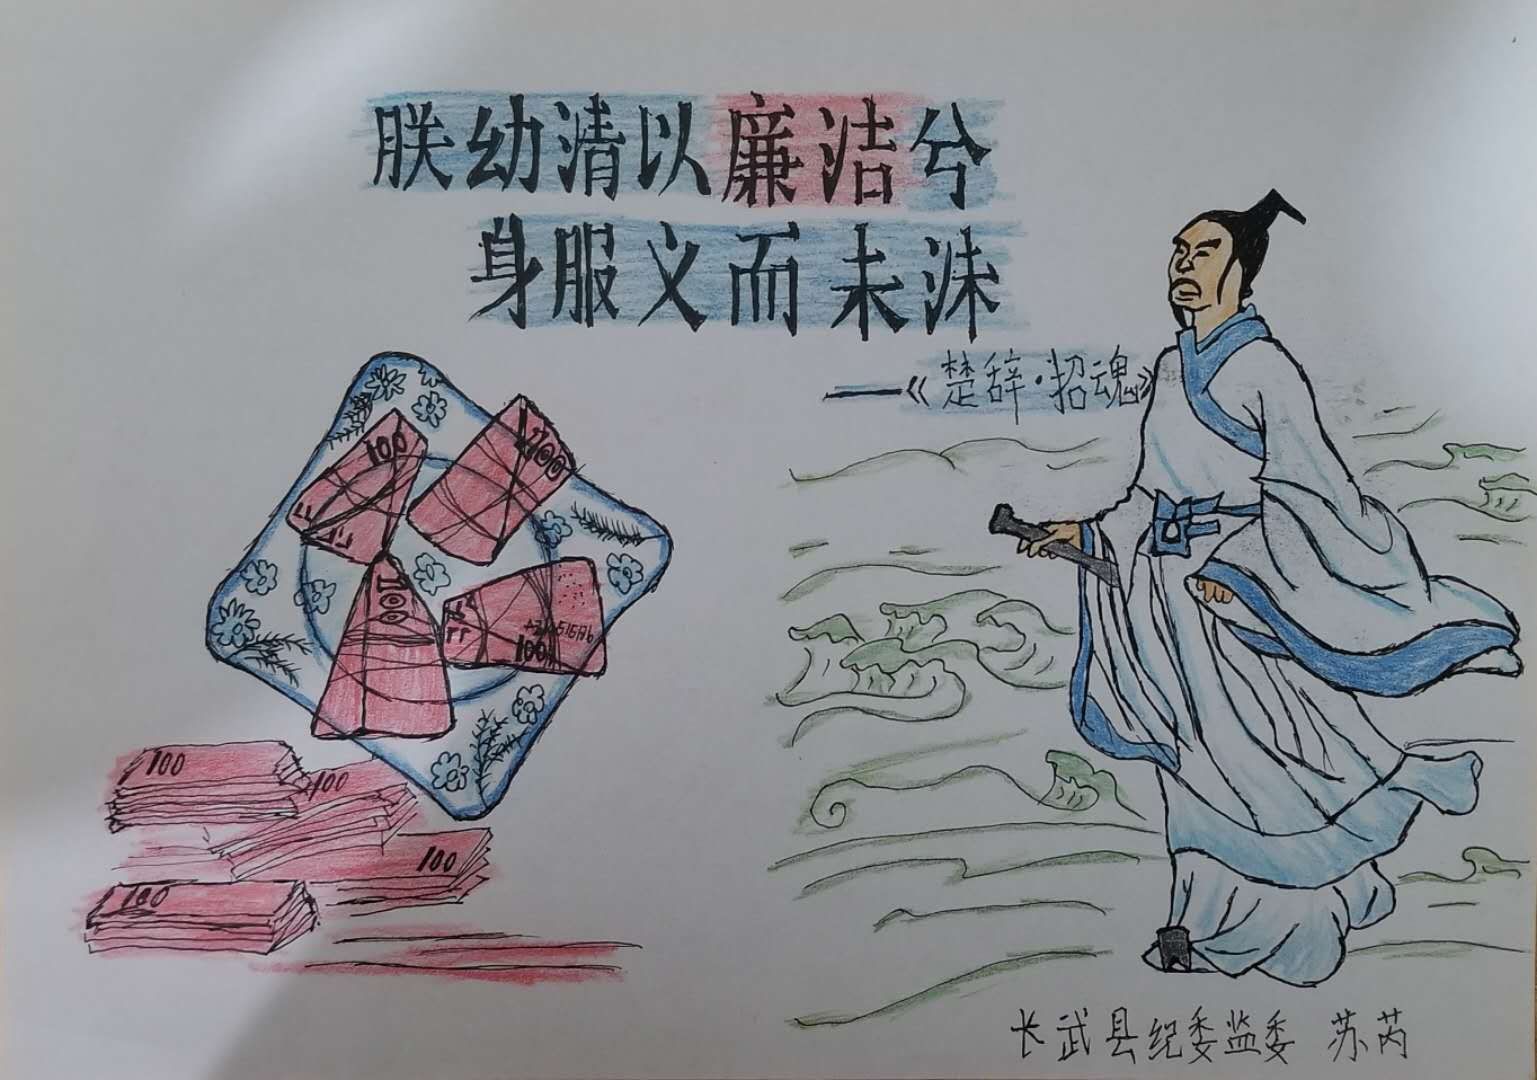 朕幼清以廉洁兮
身服义而未沬
——《楚辞·招魂》
100
100
100
100
100
100
100
100
长武县纪委监委 苏芮